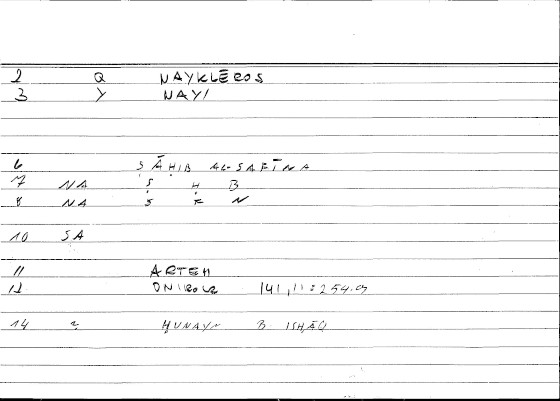 2 Q NAYKLĒROS
3 Y NAYI
6 ṢĀḤIB AL-SAFĪNA
7 NA Ṣ Ḥ B
8 NA S F N
10 SA
11 ARTEM
12 ONIROCR 141,11:254.9
14 ḤUNAYN B ISḤĀQ